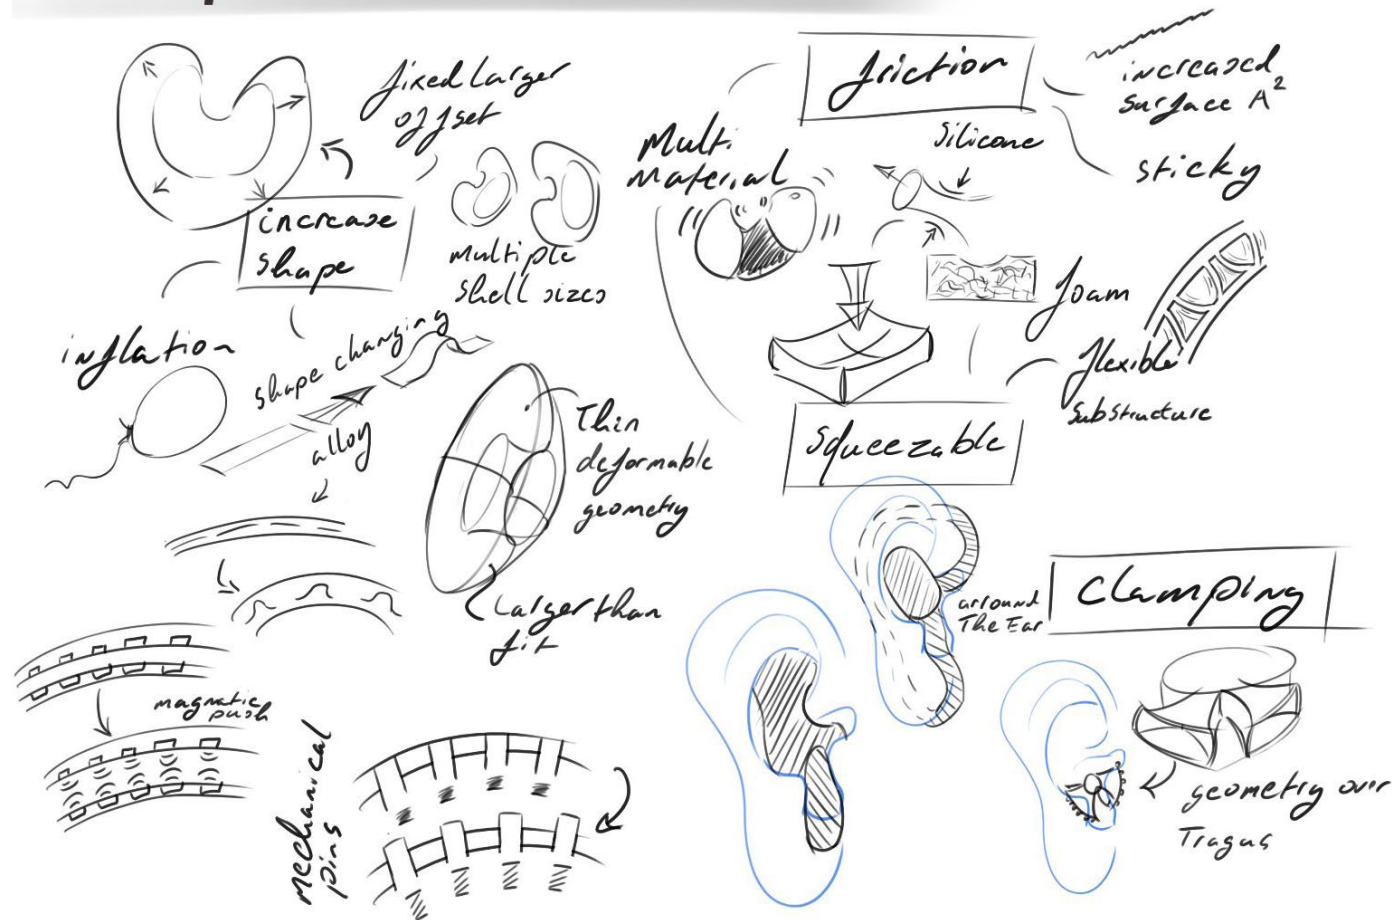 fixed Larger
offset
increase
shape
multiple
shell sizes
inflation
shape changing
alloy
Thin
deformable
geometry
Larger than
fit
magnetic
push
mechanical
pins
friction
increased
surface A²
sticky
Silicone
Multi
Material
foam
flexible
substructure
squeezable
arround
The Ear
Clamping
geometry over
Tragus